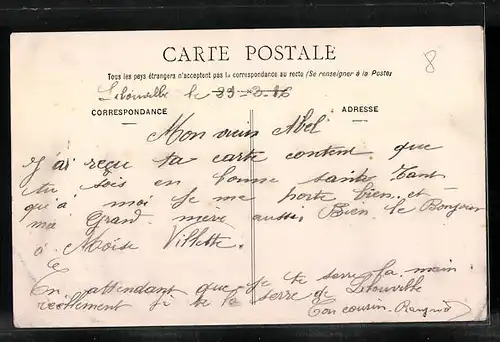 8
CARTE POSTALE
Tous les pays étrangers n'acceptent pas la correspondance au recto (Se renseigner à la Poste)
le
CORRESPONDANCE
ADRESSE
Mon vieux Abel
J'ai reçu ta carte content que
tu sois en bonne santé Tant
qu'à moi je me porte bien et
ma Grand mère aussi. Bien le Bonjour
à Moïse Villette.
En attendant que je te serre la main
réellement je te la serre de
Ton cousin